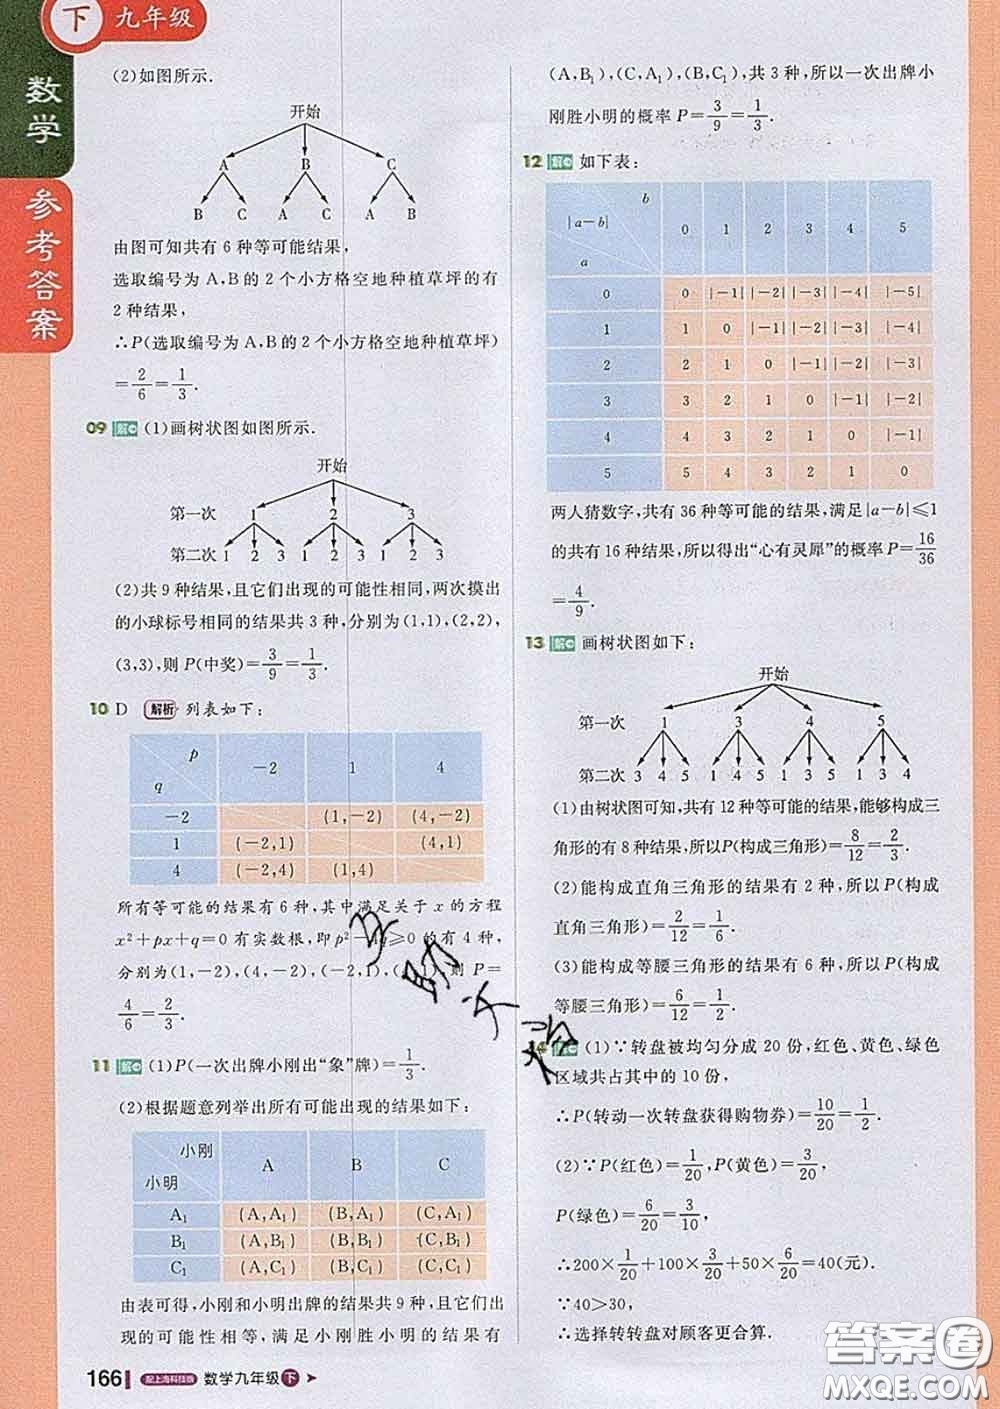 下 九年级
数学
参考答案
(2)如图所示.
开始
A B C
B C A C A B
由图可知共有 6 种等可能结果,
选取编号为 A,B 的 2 个小方格空地种植草坪的有
2 种结果,
∴P(选取编号为 A,B 的 2 个小方格空地种植草坪)
=2/6=1/3.
09 解 (1)画树状图如图所示.
开始
第一次 1 2 3
第二次 1 2 3 1 2 3 1 2 3
(2)共 9 种结果,且它们出现的可能性相同,两次摸出
的小球标号相同的结果共 3 种,分别为(1,1),(2,2),
(3,3),则 P(中奖)=3/9=1/3.
10 D 解析 列表如下:
p
q -2 1 4
-2 (1,-2) (4,-2)
1 (-2,1) (4,1)
4 (-2,4) (1,4)
所有等可能的结果有 6 种,其中满足关于 x 的方程
x²+px+q=0 有实数根,即 p²-4q≥0 的有 4 种,
分别为(1,-2),(4,-2),(-2,1),(4,1),则 P=
4/6=2/3.
11 解 (1)P(一次出牌小刚出“象”牌)=1/3.
(2)根据题意列举出所有可能出现的结果如下:
小刚
小明 A B C
A₁ (A,A₁) (B,A₁) (C,A₁)
B₁ (A,B₁) (B,B₁) (C,B₁)
C₁ (A,C₁) (B,C₁) (C,C₁)
由表可得,小刚和小明出牌的结果共 9 种,且它们出
现的可能性相等,满足小刚胜小明的结果有
(A,B₁),(C,A₁),(B,C₁),共 3 种,所以一次出牌小
刚胜小明的概率 P=3/9=1/3.
12 解 如下表:
b
|a-b| 0 1 2 3 4 5
a
0 0 |-1| |-2| |-3| |-4| |-5|
1 1 0 |-1| |-2| |-3| |-4|
2 2 1 0 |-1| |-2| |-3|
3 3 2 1 0 |-1| |-2|
4 4 3 2 1 0 |-1|
5 5 4 3 2 1 0
两人猜数字,共有 36 种等可能的结果,满足|a-b|≤1
的共有 16 种结果,所以得出“心有灵犀”的概率 P=16/36
=4/9.
13 解 画树状图如下:
开始
第一次 1 3 4 5
第二次 3 4 5 1 4 5 1 3 5 1 3 4
(1)由树状图可知,共有 12 种等可能的结果,能够构成三
角形的有 8 种结果,所以 P(构成三角形)=8/12=2/3.
(2)能构成直角三角形的结果有 2 种,所以 P(构成
直角三角形)=2/12=1/6.
(3)能构成等腰三角形的结果有 6 种,所以 P(构成
等腰三角形)=6/12=1/2.
14 解 (1)∵转盘被均匀分成 20 份,红色、黄色、绿色
区域共占其中的 10 份,
∴P(转动一次转盘获得购物券)=10/20=1/2.
(2)∵P(红色)=1/20,P(黄色)=3/20,
P(绿色)=6/20=3/10,
∴200×1/20+100×3/20+50×6/20=40(元).
∵40>30,
∴选择转转盘对顾客更合算.
166 配上海科技版 数学九年级 下
答案圈
MXQE.COM